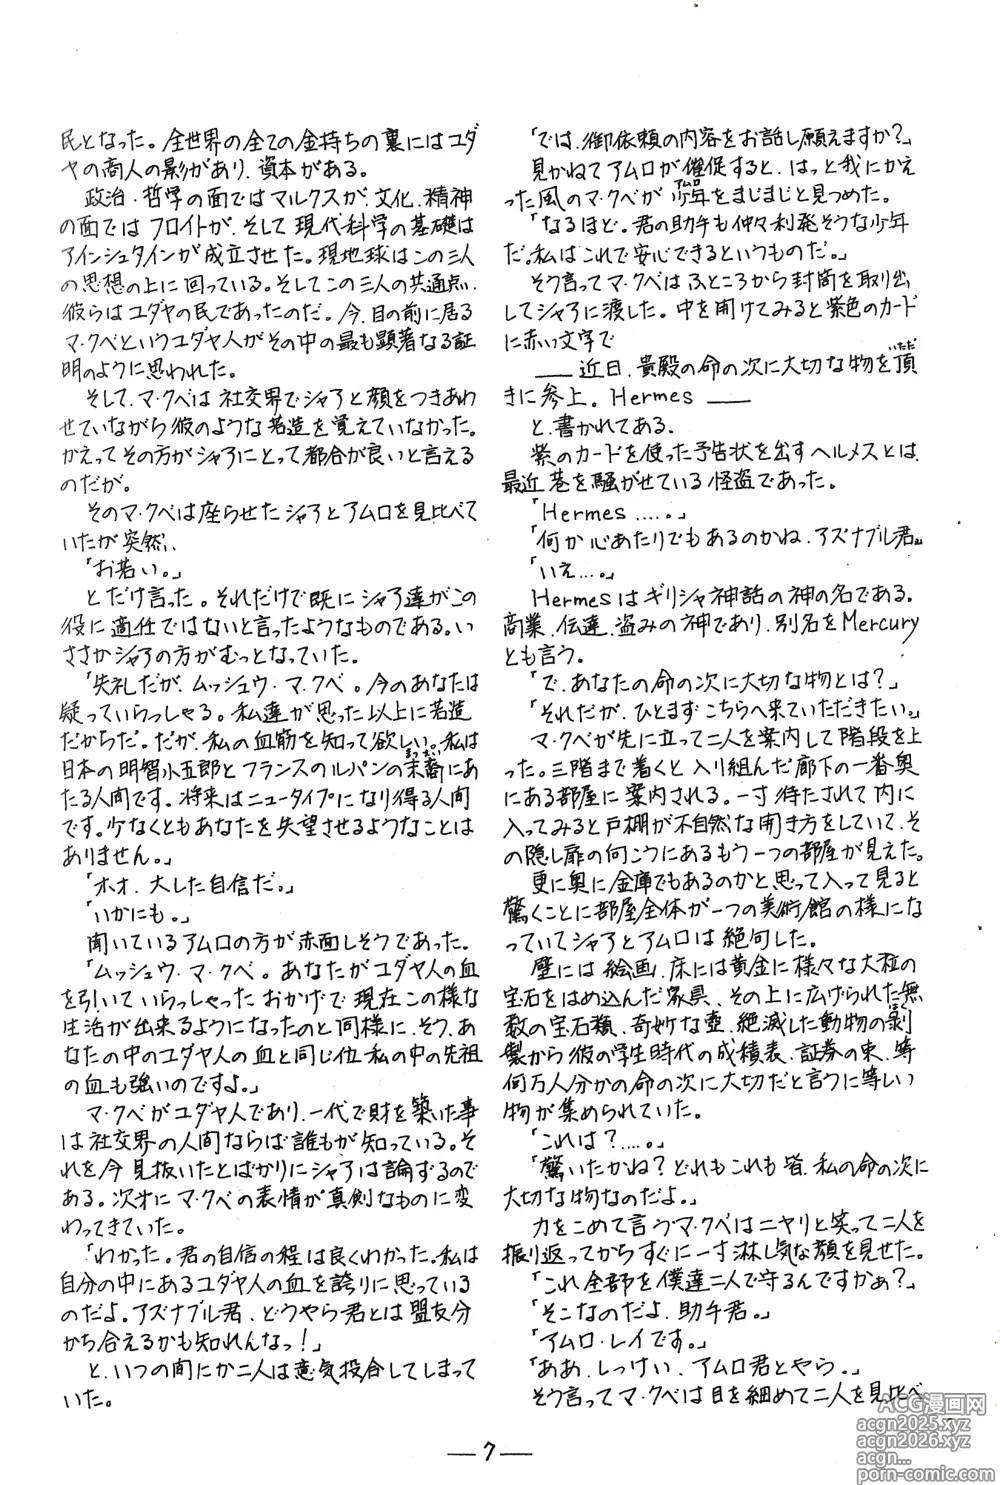 民となった。全世界の全ての金持ちの裏にはユダ
ヤの商人の影があり、資本がある。
政治・哲学の面ではマルクスが、文化、精神
の面ではフロイトが、そして現代科学の基礎は
アインシュタインが成立させた。現地球はこの三人
の思想の上に回っている。そしてこの三人の共通点、
彼らはユダヤの民であったのだ。今、目の前に居る
マ・クベというユダヤ人がその中の最も顕著なる証
明のように思われた。
そして、マ・クベは社交界でシャアと顔をつきあわ
せていながら彼のような若造を覚えていなかった。
かえってその方がシャアにとって都合が良いと言える
のだが。
そのマ・クベは座らせたシャアとアムロを見比べて
いたが突然、
「お若い。」
とだけ言った。それだけで既にシャア達がこの
役に適任ではないと言ったようなものである。い
ささかシャアの方がむっとなっていた。
「失礼だが、ムッシュウ・マ・クベ。今のあなたは
疑っていらっしゃる。私達が思った以上に若造
だからだ。だが、私の血筋を知って欲しい。私は
日本の明智小五郎とフランスのルパンの末裔にあ
たる人間です。将来はニュータイプになり得る人間
です。少なくともあなたを失望させるようなことは
ありません。」
「ホオ、大した自信だ。」
「いかにも。」
聞いているアムロの方が赤面しそうであった。
「ムッシュウ・マ・クベ。あなたがユダヤ人の血
を引いていらっしゃったおかげで現在この様な
生活が出来るようになったのと同様に、そう、あ
なたの中のユダヤ人の血と同じ位、私の中の先祖
の血も強いのですよ。」
マ・クベがユダヤ人であり、一代で財を築いた事
は社交界の人間ならば誰もが知っている。そ
れを今見抜いたとばかりにシャアは論ずるので
ある。次オにマ・クベの表情が真剣なものに変
わってきていた。
「わかった。君の自信の程は良くわかった。私は
自分の中にあるユダヤ人の血を誇りに思っている
のだよ。アズナブル君、どうやら君とは盟友分
かち合えるかも知れんなっ！」
と、いつの間にか二人は意気投合してしまって
いた。
「では、御依頼の内容をお話し願えますか？」
見かねてアムロが催促すると、はっと我にかえ
った風のマ・クベが少年をまじまじと見つめた。
「なるほど。君の助手も仲々利発そうな少年
だ。私はこれで安心できるというものだ。」
そう言ってマ・クベはふところから封筒を取り出
してシャアに渡した。中を開けてみると紫色のカード
に赤い文字で
――近日、貴殿の命の次に大切な物を頂
きに参上。Hermes――
と、書かれてある。
紫のカードを使った予告状を出すヘルメスとは、
最近巷を騒がせている怪盗であった。
「Hermes……。」
「何か心あたりでもあるのかね、アズナブル君。」
「いえ…。」
Hermesはギリシャ神話の神の名である。
商業、伝達、盗みの神であり、別名をMercury
とも言う。
「で、あなたの命の次に大切な物とは？」
「それだが、ひとまずこちらへ来ていただきたい。」
マ・クベが先に立って二人を案内して階段を上
った。三階まで着くと入り組んだ廊下の一番奥
にある部屋に案内される。一寸待たされて内に
入ってみると戸棚が不自然な開き方をしていて、そ
の隠し扉の向こうにあるもう一つの部屋が見えた。
更に奥に金庫でもあるのかと思って入って見ると
驚くことに部屋全体が一つの美術館の様にな
っていてシャアとアムロは絶句した。
壁には絵画、床には黄金に様々な大粒の
宝石をはめ込んだ家具、その上に広げられた無
数の宝石類、奇妙な壺、絶滅した動物の剥
製から彼の学生時代の成績表、証券の束、等
何万人分かの命の次に大切だと言うに等しい
物が集められていた。
「これは？…。」
「驚いたかね？どれもこれも皆、私の命の次に
大切な物なのだよ。」
力をこめて言うマ・クベはニヤリと笑って二人を
振り返ってからすぐに一寸淋し気な顔を見せた。
「これ全部を僕達二人で守るんですかぁ？」
「そこなのだよ、助手君。」
「アムロ・レイです。」
「ああ、しっけい、アムロ君とやら。」
そう言ってマ・クベは目を細めて二人を見比べ
―7―
ACG漫画网
acgn2025.xyz
acgn2026.xyz
acgn...
porn-comic.com